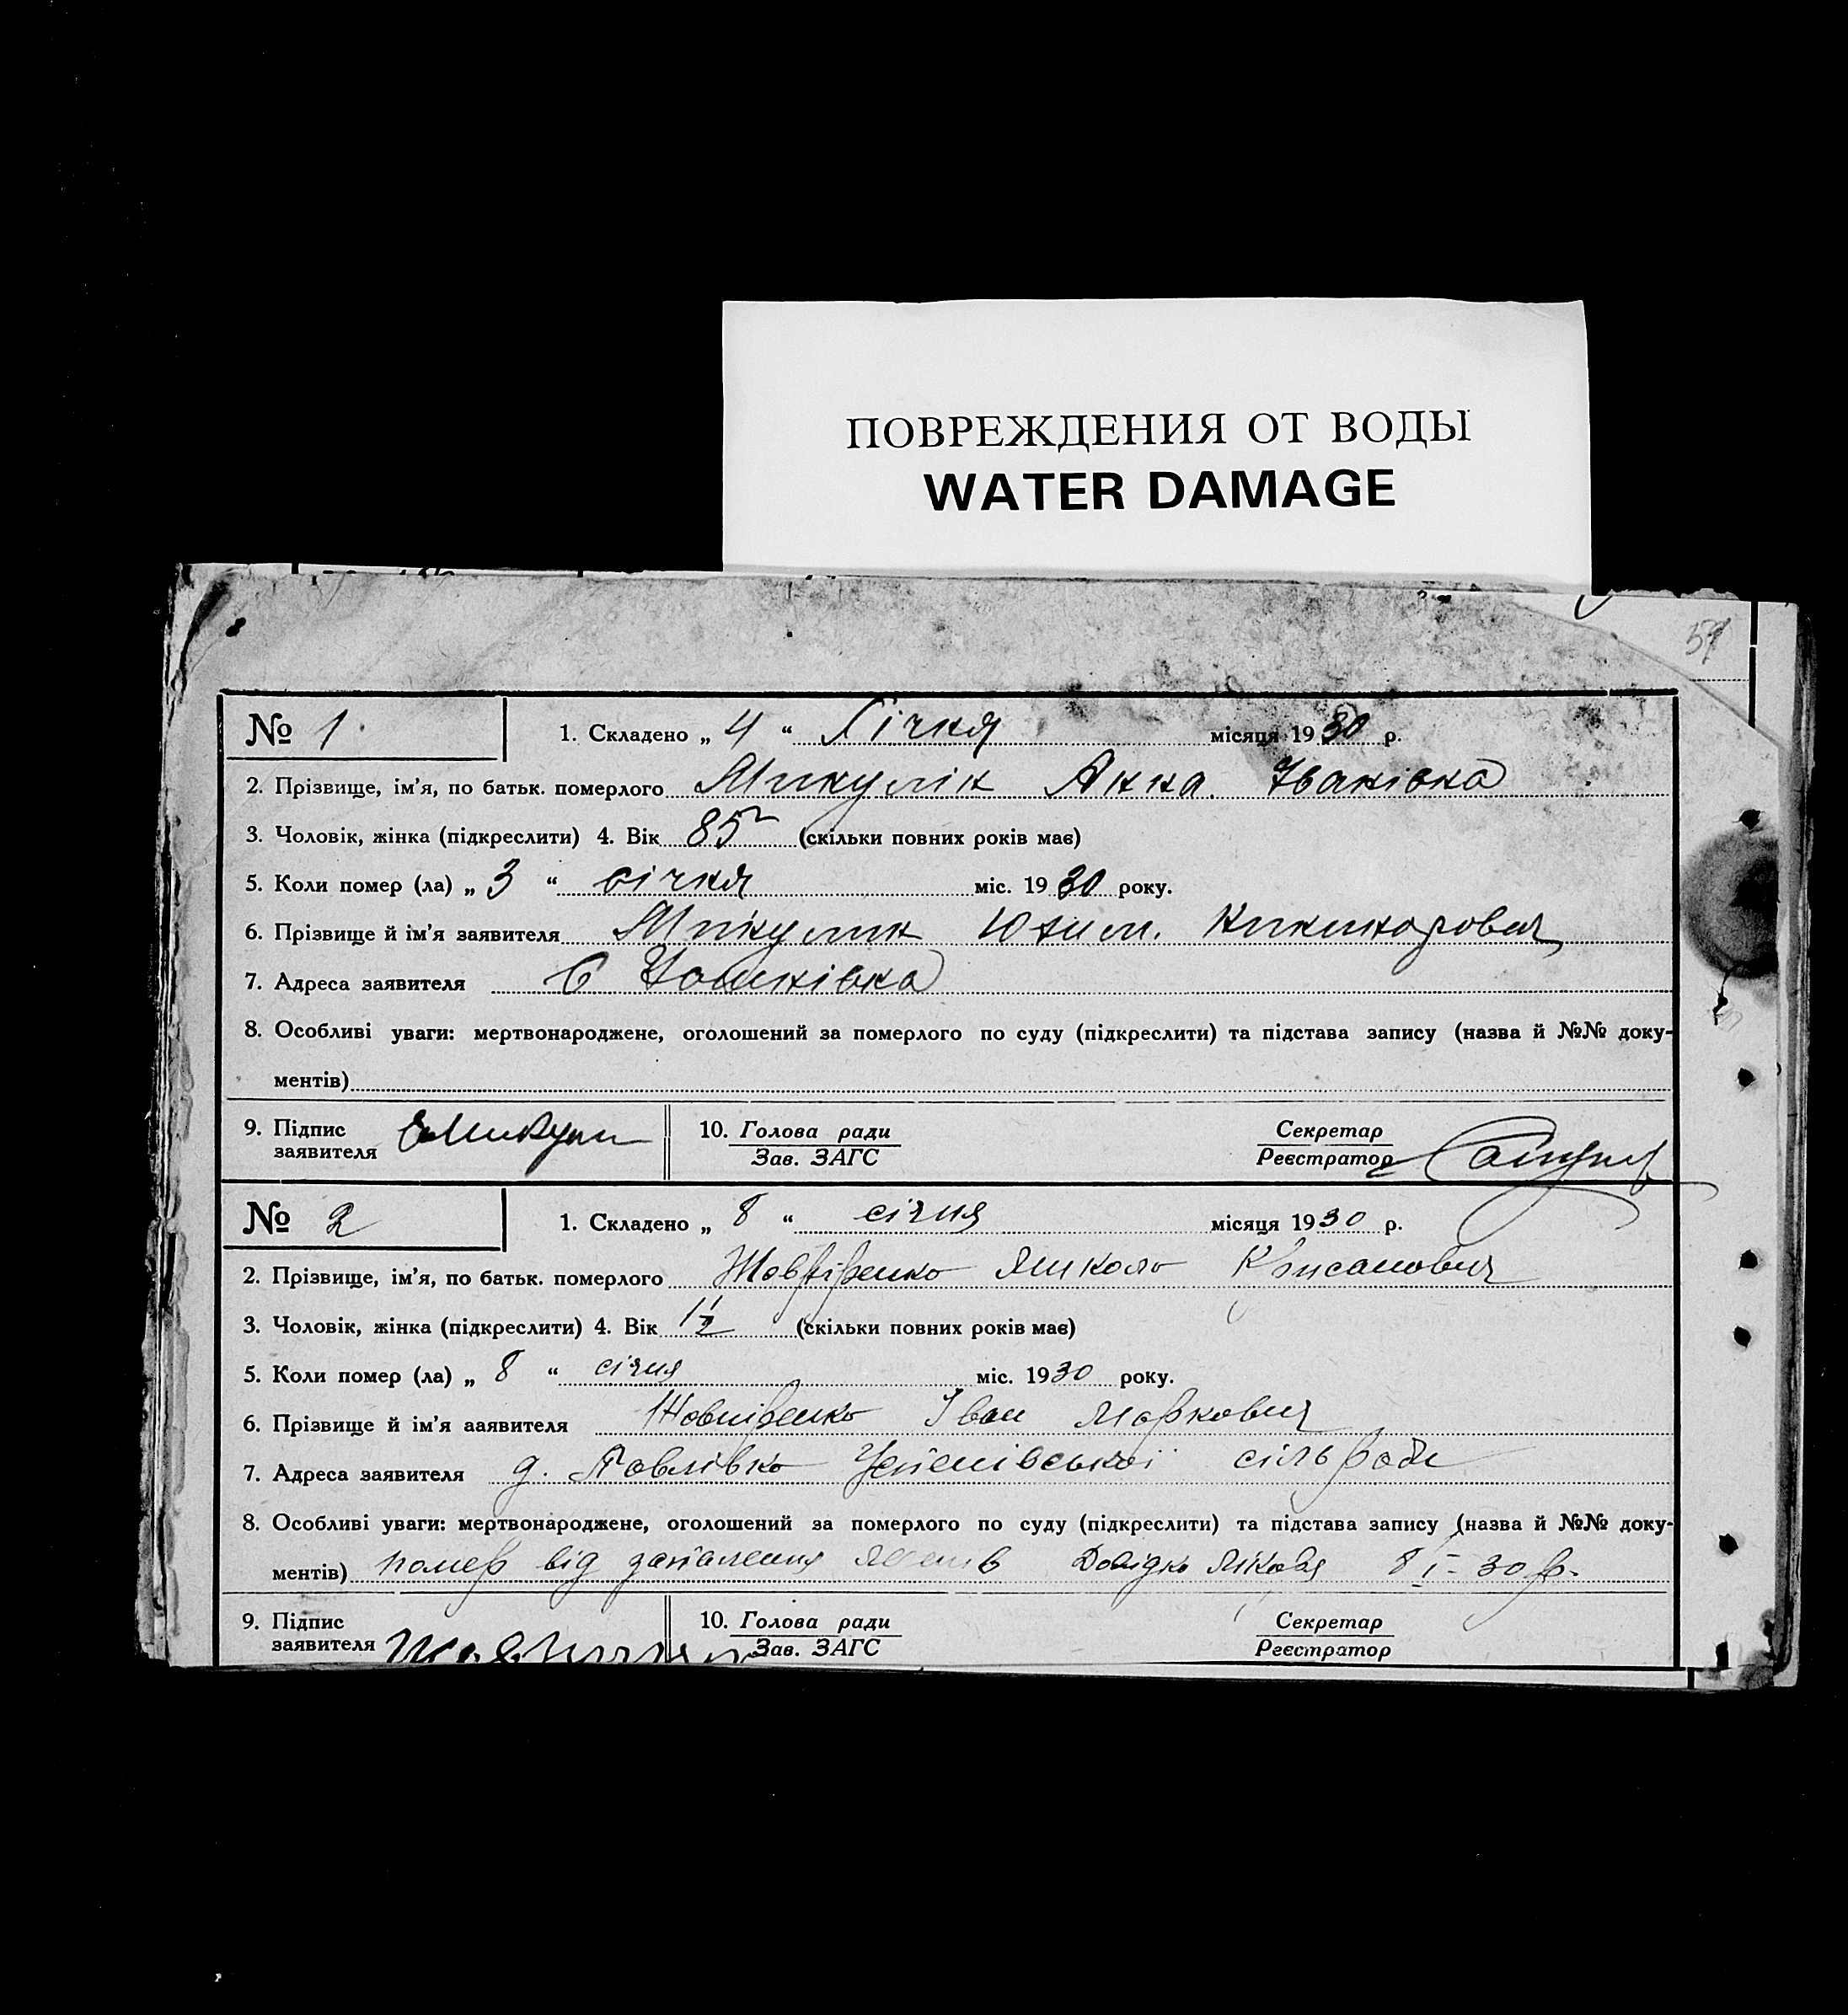 ПОВРЕЖДЕНИЯ ОТ ВОДЫ
WATER DAMAGE
№ 1. 1. Складено „ 4 “ Січня місяця 1930 р.
2. Прізвище, ім’я, по батьк. померлого Микулік Анна Іванівна
3. Чоловік, жінка (підкреслити) 4. Вік 85 (скільки повних років має)
5. Коли помер (ла) „ 3 “ січня міс. 1930 року.
6. Прізвище й ім’я заявителя Микулик Юхим Никифорович
7. Адреса заявителя с
8. Особливі уваги: мертвонароджене, оголошений за померлого по суду (підкреслити) та підстава запису (назва й №№ доку-
ментів)
9. Підпис заявителя 10. Голова ради Секретар
Зав. ЗАГС Реєстратор
№ 2 1. Складено „ 8 “ січня місяця 1930 р.
2. Прізвище, ім’я, по батьк. померлого Жовніренко Микола
3. Чоловік, жінка (підкреслити) 4. Вік 1½ (скільки повних років має)
5. Коли помер (ла) „ 8 “ січня міс. 1930 року.
6. Прізвище й ім’я ааявителя Жовніренко Іван Маркович
7. Адреса заявителя д. Павлівка Успенівської сільради
8. Особливі уваги: мертвонароджене, оголошений за померлого по суду (підкреслити) та підстава запису (назва й №№ доку-
ментів) помер від запалення Довідка лікаря 8 I - 30 р.
9. Підпис заявителя 10. Голова ради Секретар
Зав. ЗАГС Реєстратор